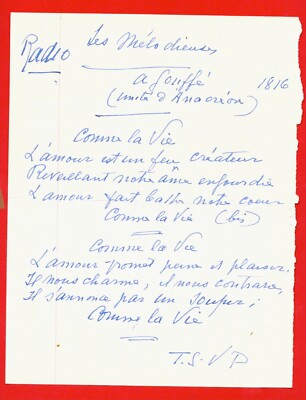 Radio
Les Mélodieuses
A. Gouffé 1816
(imité d'Anacréon)
Comme la Vie
L'amour est un feu créateur
Reveillant notre âme engourdie
L'amour fait battre notre coeur
Comme la Vie (bis)
Comme la Vie
L'amour promet peine et plaisir.
Il nous charme, il nous contrarie,
Il s'annonce par un soupir;
Comme la Vie
T.S.V.P